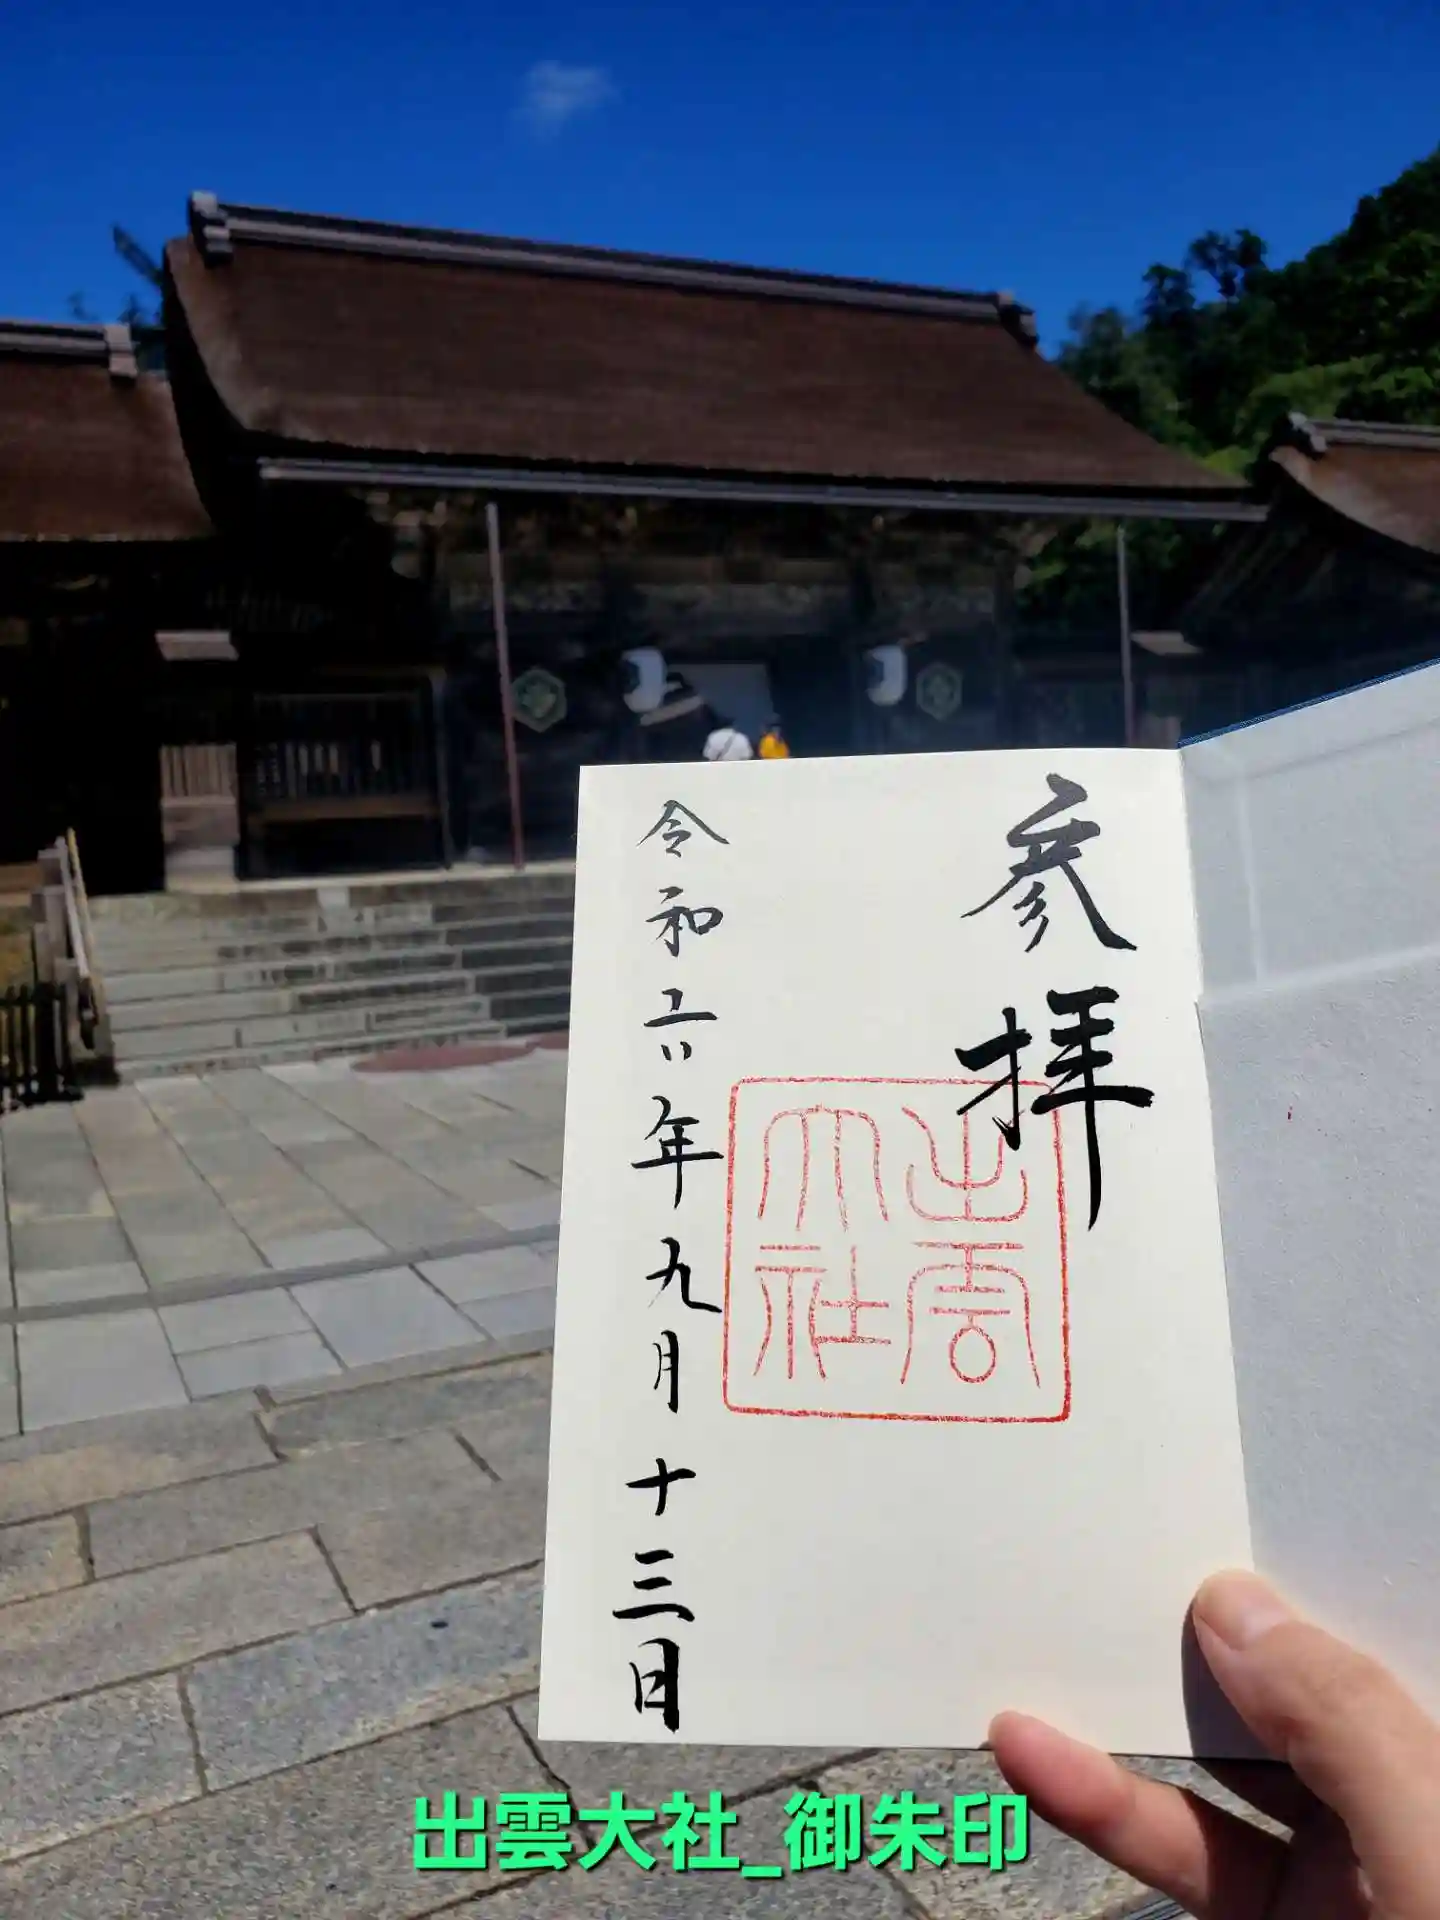 参拝
出雲
大社
令和六年九月十三日
出雲大社_御朱印